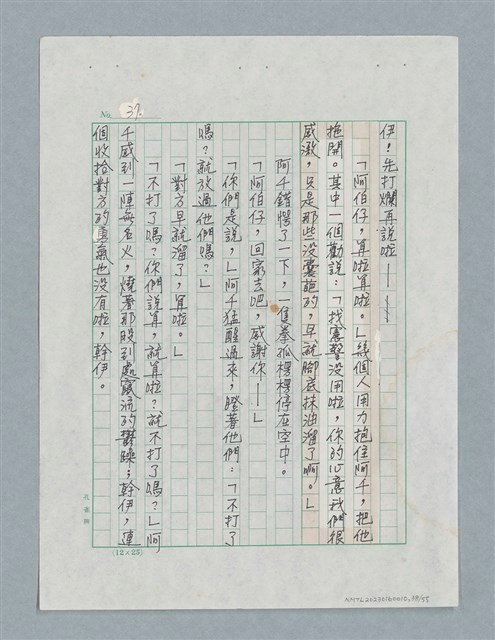 No. 37.
伊!先打爛再說啦——
「阿伯仔,算啦算啦。」幾個人用力抱住阿千,把他
拖開。其中一個勸說:「找憲警沒用啦,你的心意我們很
感激,只是那些沒囊葩的,早就腳底抹油溜了啊。」
阿千錯愕了一下,一隻拳孤楞楞停在空中。
「阿伯仔,回家去吧,感謝你——」
「你們是說,」阿千猛醒過來,瞪著他們:「不打了
嗎?就放過他們嗎?」
「對方早就溜了,算啦。」
「不打了嗎?你們說算,就算啦?就不打了嗎?」阿
千感到一陣無名火,燒著那股到處竄流的鬱躁;幹伊,連
個收拾對方的勇氣也沒有啦,幹伊。
孔雀牌
(12×25)
NMTL20230160010, 38/55